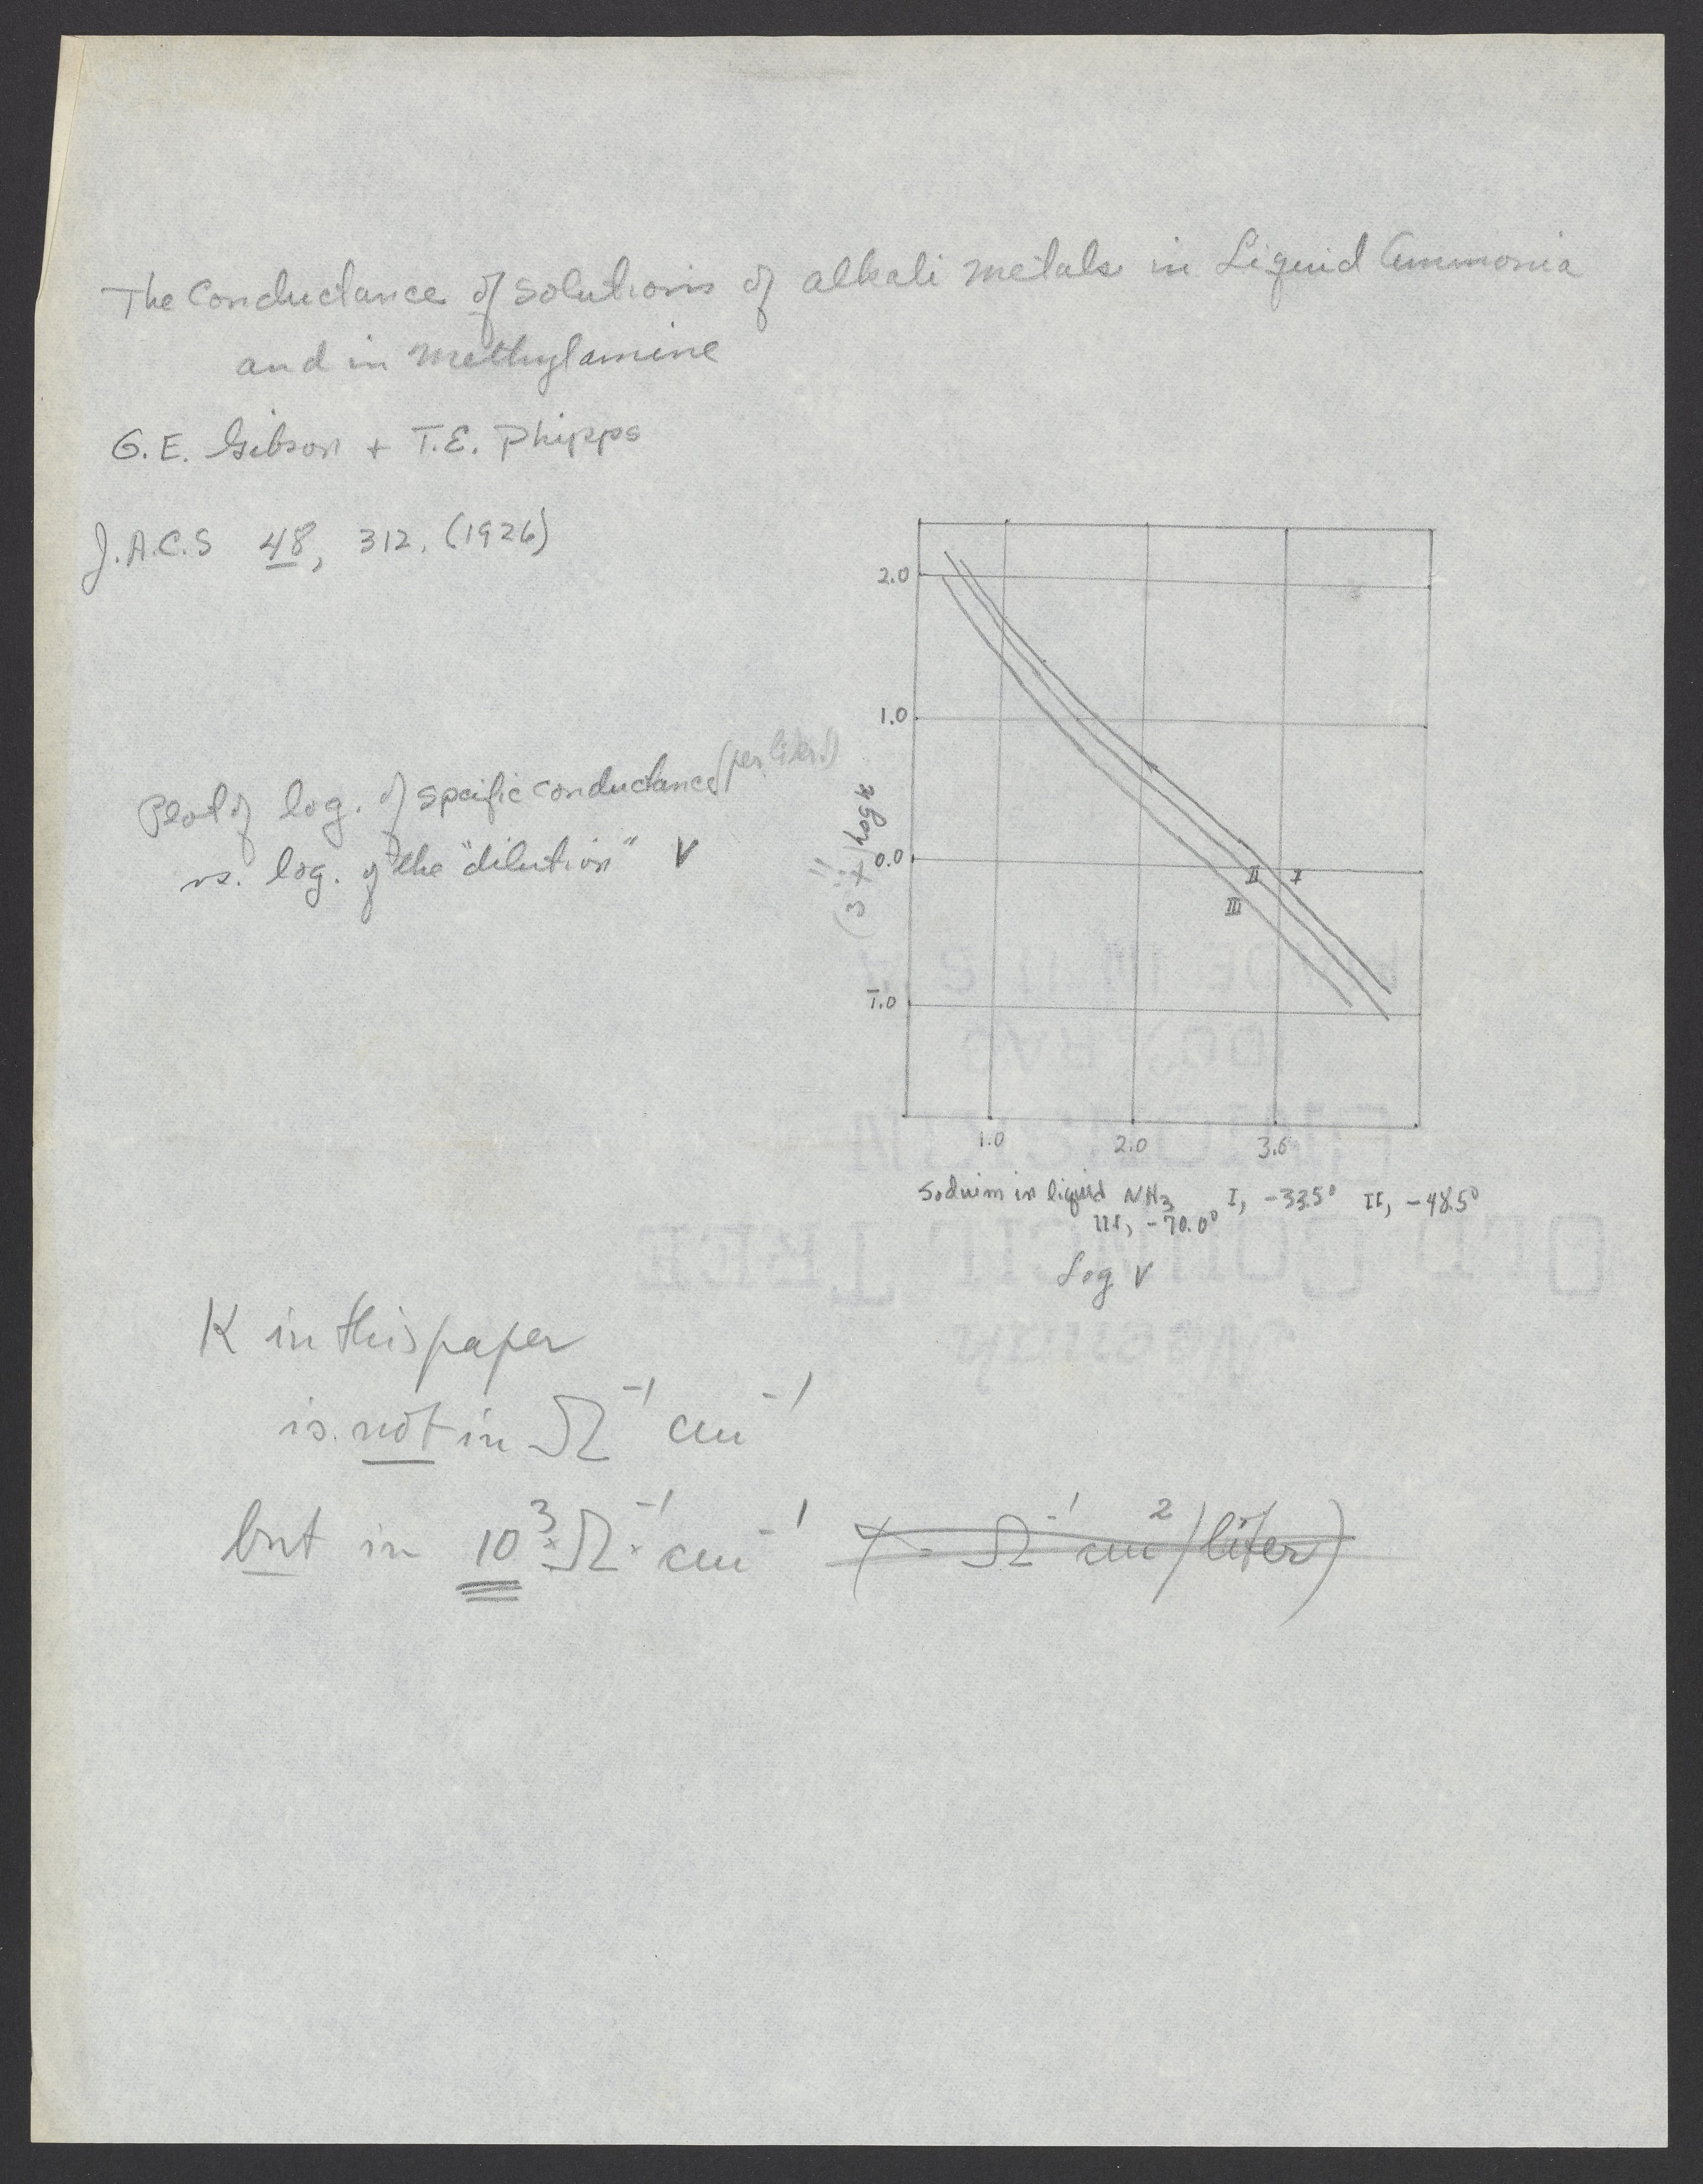 The Conductance of Solutions of alkali metals in Liquid Ammonia
and in Methylamine
G.E. Gibson + T.E. Phipps
J.A.C.S 48, 312, (1926)
Plot of log. of specific conductance (per liter!)
vs. log. of the "dilution" V
2.0
1.0
0.0
1̅.0
(3 + log κ
II I
III
1.0 2.0 3.0
Sodium in liquid NH3 I, -33.5° II, -48.5°
III, -70.0°
Log V
K in this paper
is not in Ω⁻¹ cm⁻¹
but in 10³·Ω⁻¹·cm⁻¹ (= Ω⁻¹ cm²/liter)